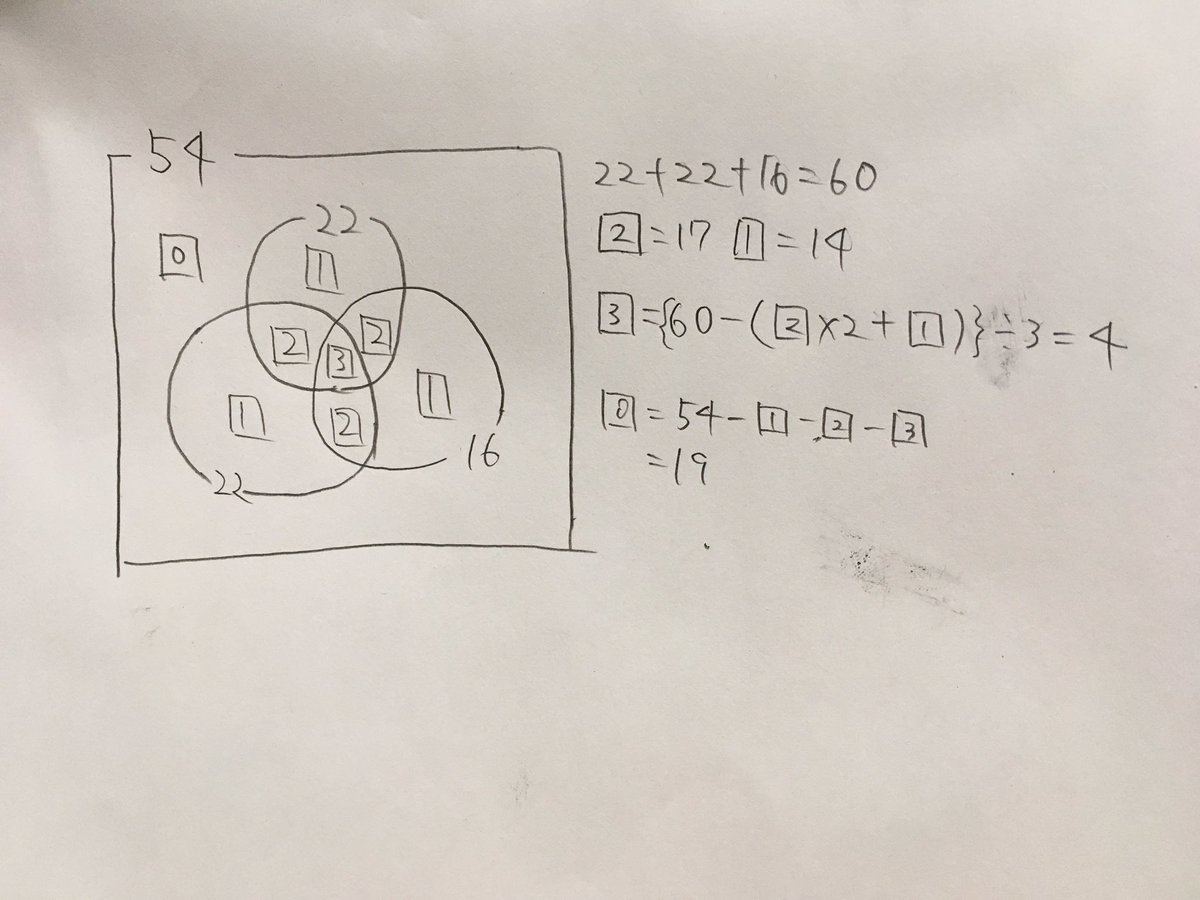 54
22
0
1
2
2
3
1
1
2
16
22
22+22+16=60
2=17 1=14
3={60-(2×2+1)}÷3=4
0=54-1-2-3
=19